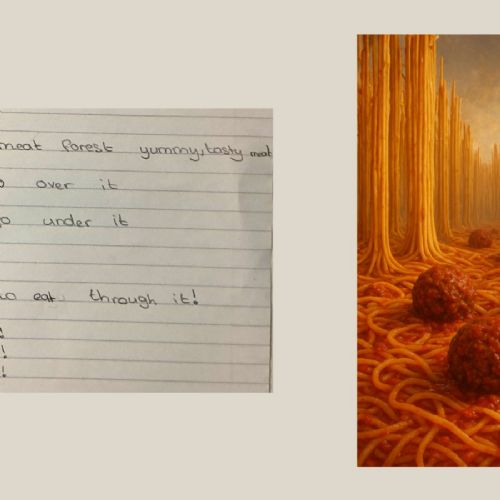 meat forest yummy, tasty meat
over it
under it
eat through it!
!
!
!